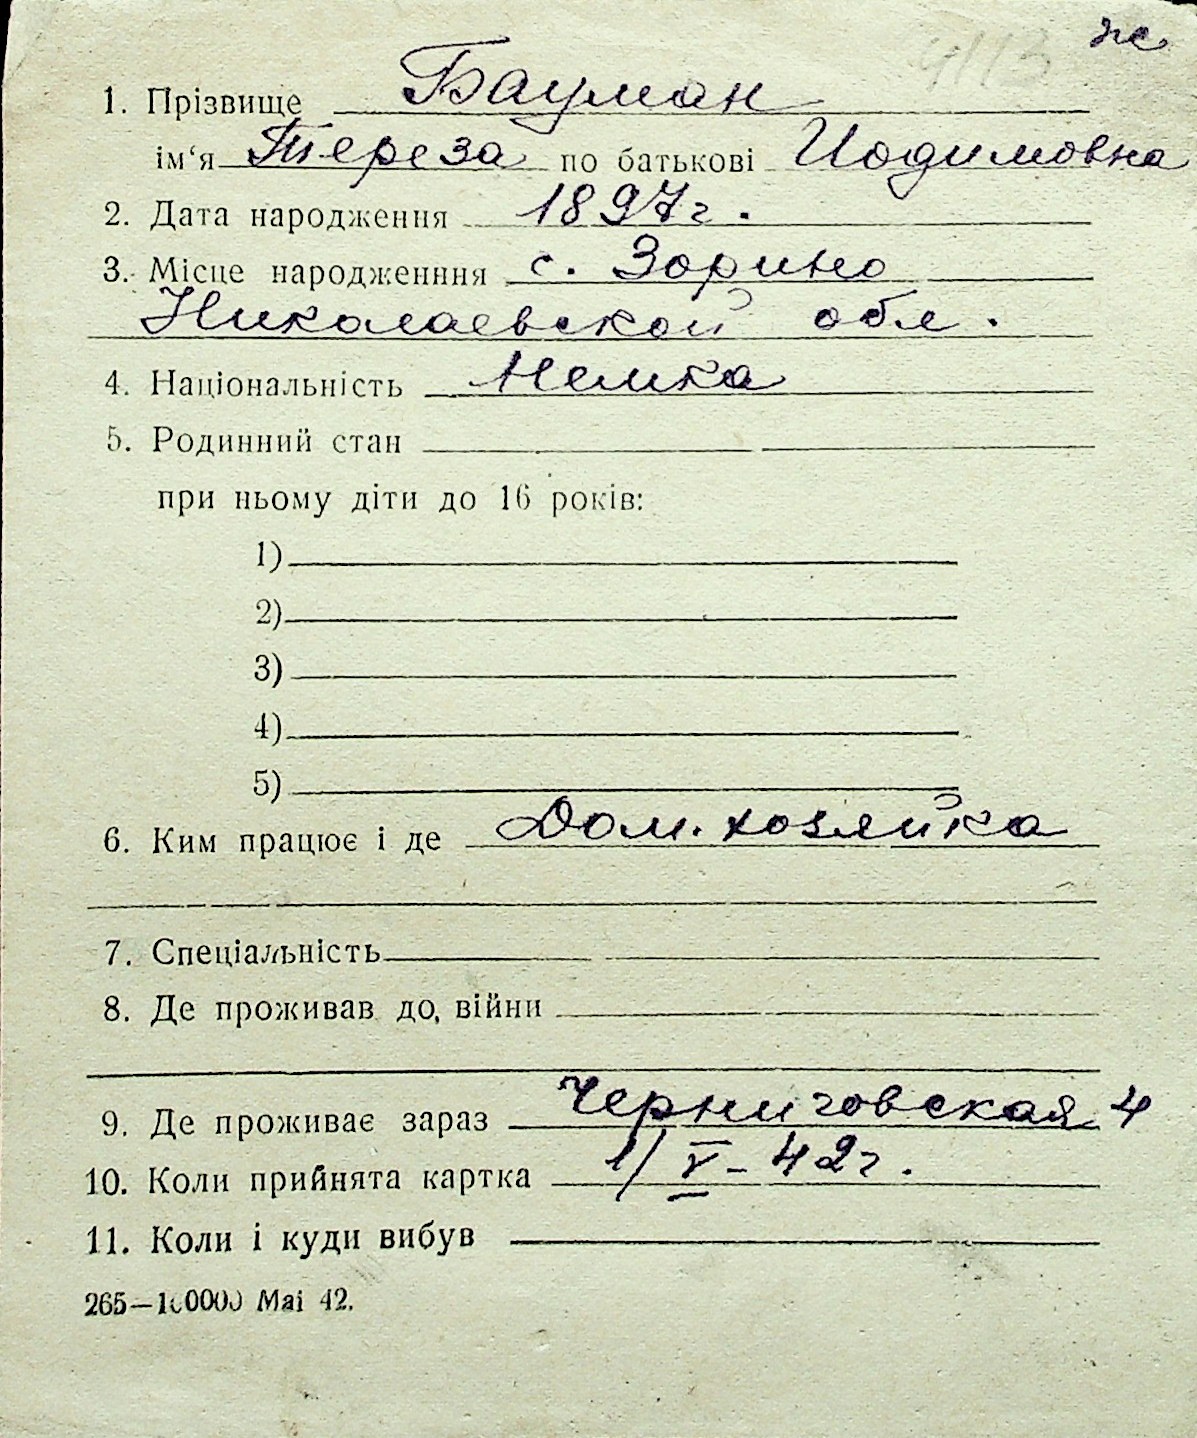 же
1. Прізвище Бауман
ім‘я Тереза по батькові Иодимовна
2. Дата народження 1897г.
3. Місце народженння с. Зорино
Николаевской обл.
4. Національність Немка
5. Родинний стан
при ньому діти до 16 років:
1)
2)
3)
4)
5)
6. Ким працює і де Дом. хозяйка
7. Спеціальність
8. Де проживав до, війни
9. Де проживає зараз Черниговская 4
10. Коли прийнята картка 1/V-42г.
11. Коли і куди вибув
265—100000 Mai 42.